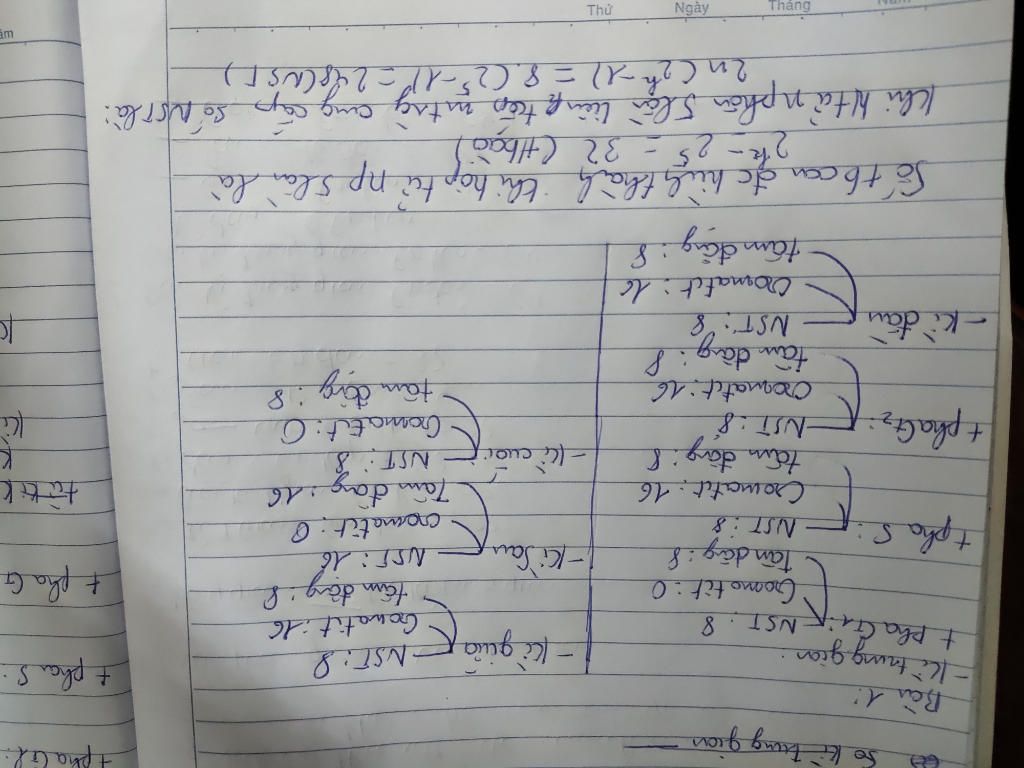 Thứ Ngày Tháng Năm
so kì trung gian
Bài 1:
- Kì trung gian:
+ pha G1: NST: 8
Cromatit: 0
tâm động: 8
+ pha S: NST: 8
Cromatit: 16
tâm động: 8
+ pha G2: NST: 8
Cromatit: 16
tâm động: 8
- Kì đầu NST: 8
Cromatit: 16
tâm động: 8
- Kì giữa NST: 8
Cromatit: 16
tâm động: 8
- Kì sau NST: 16
Cromatit: 0
Tâm động: 16
- Kì cuối NST: 8
Cromatit: 0
tâm động: 8
Số tb con đc hình thành khi hợp tử np 5 lần là
2^k = 2^5 = 32 (tbào)
Khi htử n phân 5 lần liên tiếp mtrg cung cấp số NST là:
2n(2^k-1) = 8.(2^5-1) = 248(NST)
+ pha G1:
+ pha S:
+ pha G
từ kì K
K
Kì
K
ăm